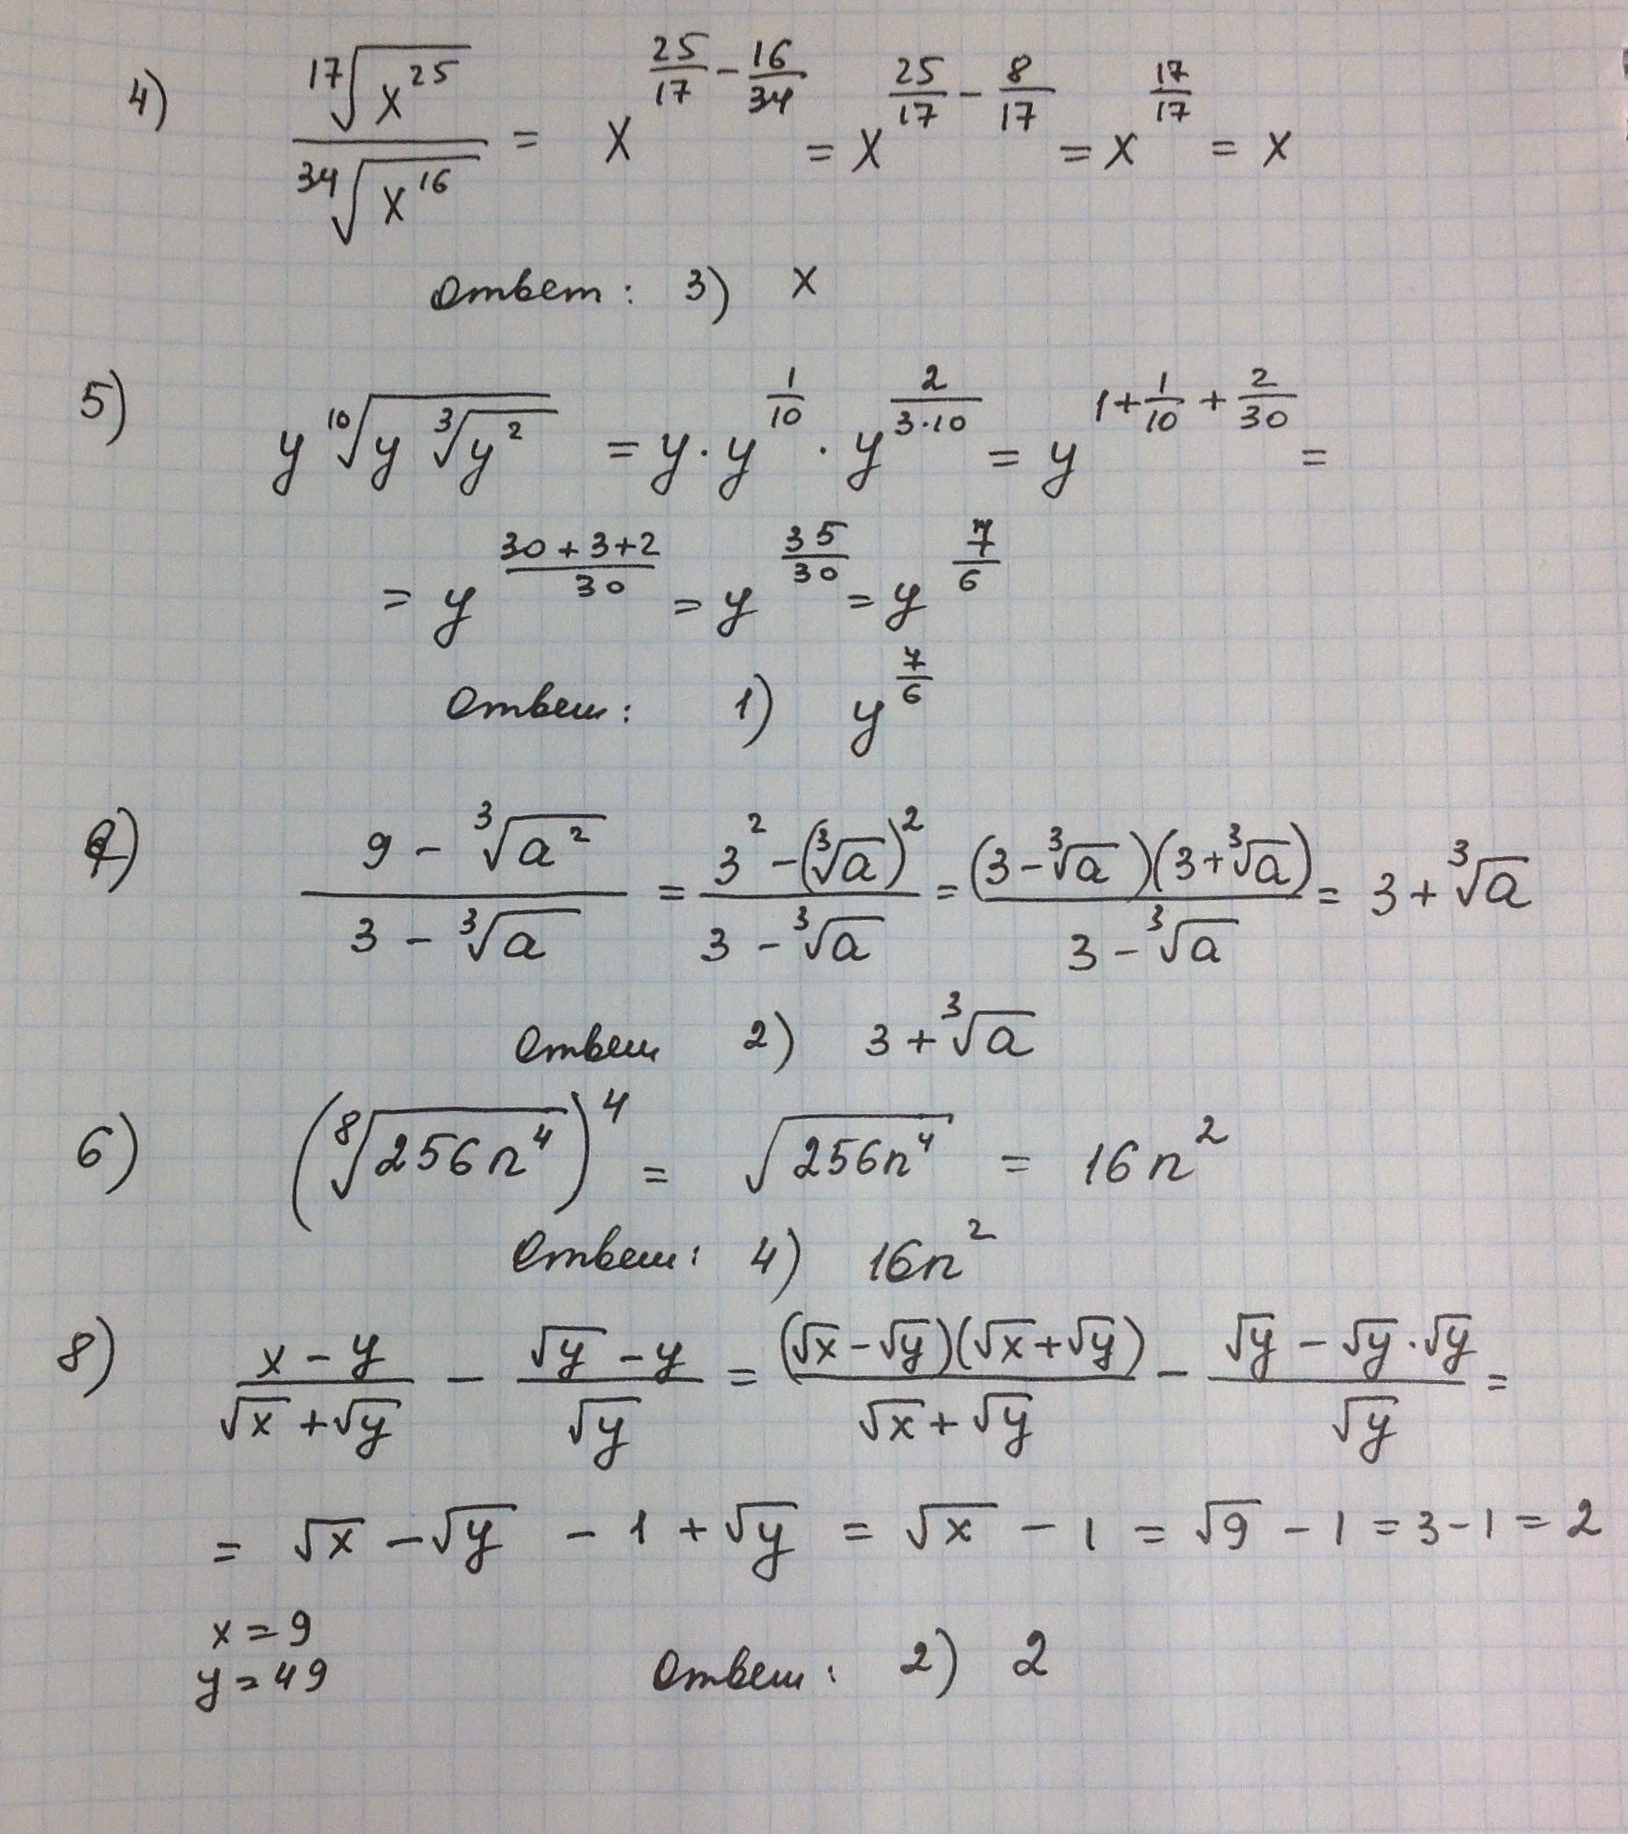 4) \frac{\sqrt[17]{x^{25}}}{\sqrt[34]{x^{16}}} = x^{\frac{25}{17} - \frac{16}{34}} = x^{\frac{25}{17} - \frac{8}{17}} = x^{\frac{17}{17}} = x
Ответ: 3) x
5) y \sqrt[10]{y \sqrt[3]{y^2}} = y · y^{\frac{1}{10}} · y^{\frac{2}{3·10}} = y^{1 + \frac{1}{10} + \frac{2}{30}} =
= y^{\frac{30+3+2}{30}} = y^{\frac{35}{30}} = y^{\frac{7}{6}}
Ответ: 1) y^{\frac{7}{6}}
\frac{9 - \sqrt[3]{a^2}}{3 - \sqrt[3]{a}} = \frac{3^2 - (\sqrt[3]{a})^2}{3 - \sqrt[3]{a}} = \frac{(3 - \sqrt[3]{a})(3 + \sqrt[3]{a})}{3 - \sqrt[3]{a}} = 3 + \sqrt[3]{a}
Ответ 2) 3 + \sqrt[3]{a}
6) (\sqrt[8]{256n^4})^4 = \sqrt{256n^4} = 16n^2
Ответ: 4) 16n^2
8) \frac{x - y}{\sqrt{x} + \sqrt{y}} - \frac{\sqrt{y} - y}{\sqrt{y}} = \frac{(\sqrt{x} - \sqrt{y})(\sqrt{x} + \sqrt{y})}{\sqrt{x} + \sqrt{y}} - \frac{\sqrt{y} - \sqrt{y}·\sqrt{y}}{\sqrt{y}} =
= \sqrt{x} - \sqrt{y} - 1 + \sqrt{y} = \sqrt{x} - 1 = \sqrt{9} - 1 = 3 - 1 = 2
x = 9
y = 49
Ответ: 2) 2